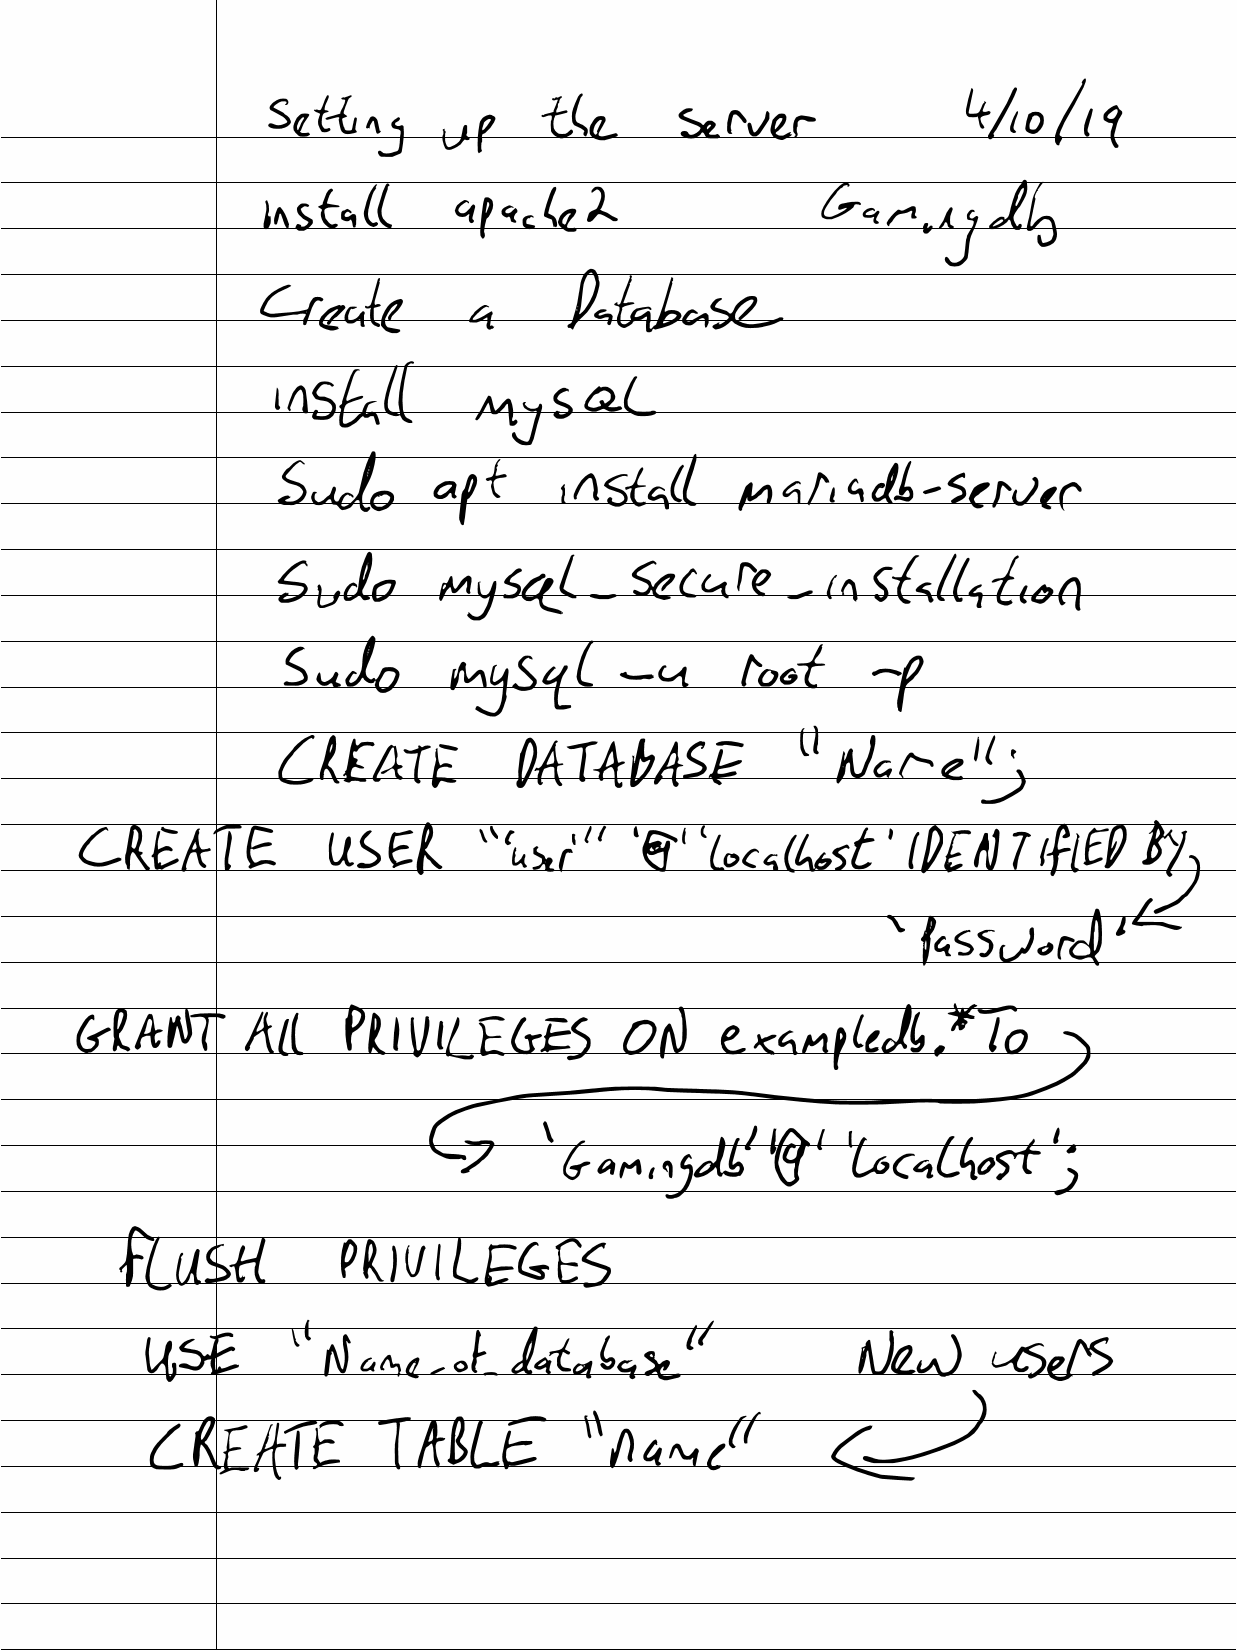 Setting up the server 4/10/19
install apache2 Gamingdb
Create a Database
install mysQL
Sudo apt install mariadb-server
Sudo mysql_secure_installation
Sudo mysql -u root -p
CREATE DATABASE "Name";
CREATE USER "'user'" '@' 'localhost' IDENTIFIED BY
'Password'
GRANT All PRIVILEGES ON exampledb.* To
'Gamingdb' '@' 'localhost';
FLUSH PRIVILEGES
USE "Name_of_database" New users
CREATE TABLE "name"